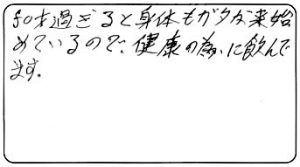 50才過ぎると身体もガタが来始
めているので、健康の為に飲んで
ます。